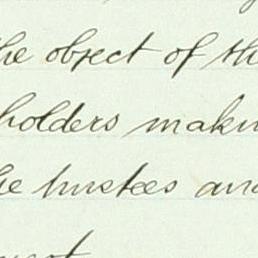 the object of the
holders makin
he trustees and